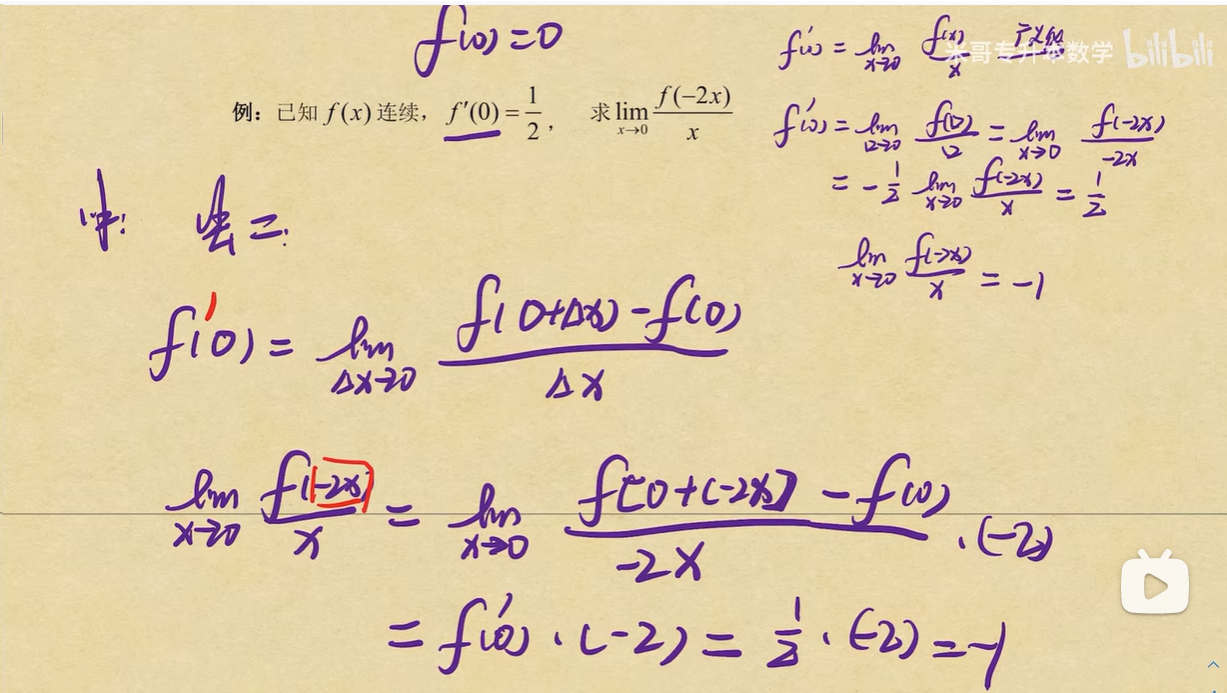 f(0)=0
例：已知 f(x) 连续， f'(0)=1/2， 求 lim x→0 f(-2x)/x
f'(0) = lim x→0 f(x)/x
米哥专升本数学 bilibili
f'(0) = lim □→0 f(□)/□ = lim x→0 f(-2x)/-2x
= -1/2 lim x→0 f(-2x)/x = 1/2
lim x→0 f(-2x)/x = -1
f'(0) = lim Δx→0 f(0+Δx)-f(0)/Δx
lim x→0 f(-2x)/x = lim x→0 f[0+(-2x)]-f(0)/-2x ·(-2)
= f'(0)·(-2) = 1/2·(-2) = -1